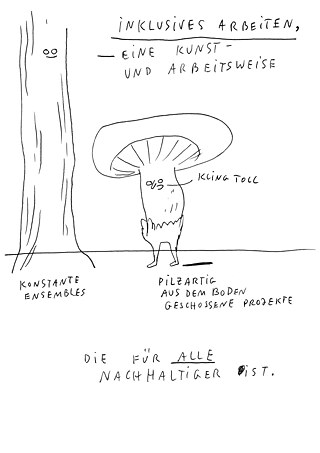 INKLUSIVES ARBEITEN,
— EINE KUNST-
UND ARBEITSWEISE
KLING TOLL
KONSTANTE
ENSEMBLES
PILZARTIG
AUS DEM BODEN
GESCHOSSENE PROJEKTE
DIE FÜR ALLE
NACHHALTIGER IST.